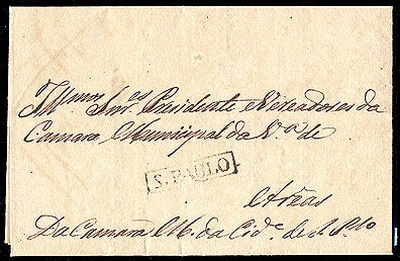 Illmos Snres Presidente e Vereadores da
Camara Municipal da Va de
S. PAULO
Arêas
Da Camara M. da Cide de S. Plo